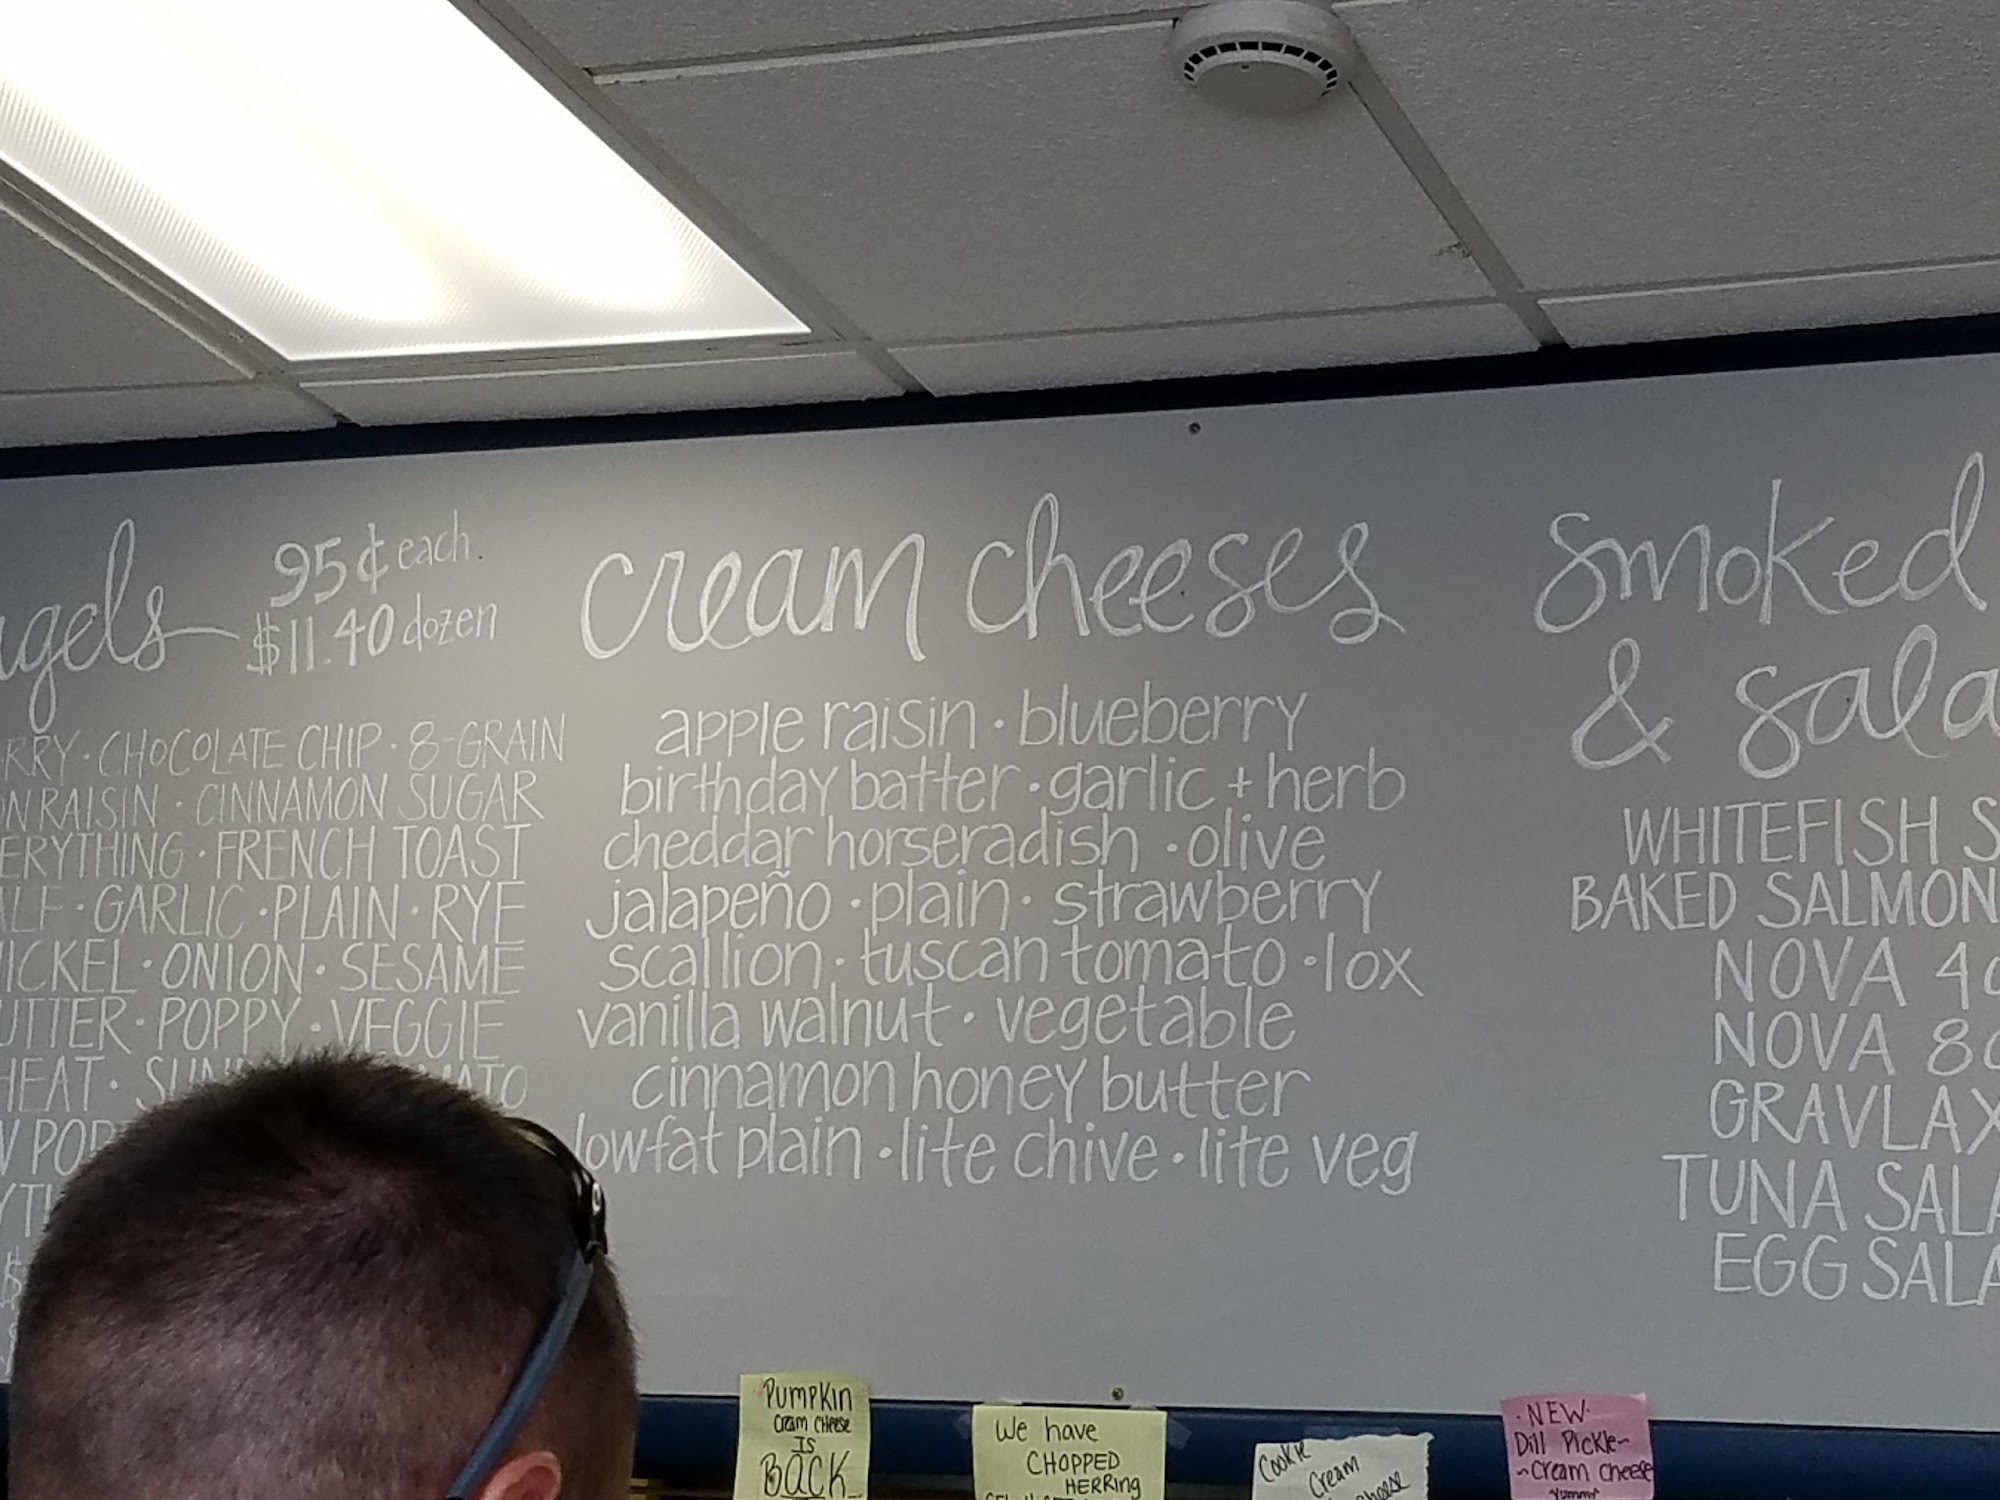 95¢ each
$11.40 dozen
CHOCOLATE CHIP · 8-GRAIN
RAISIN · CINNAMON SUGAR
FRENCH TOAST
GARLIC · PLAIN · RYE
ONION · SESAME
POPPY · VEGGIE
cream cheeses
apple raisin · blueberry
birthday batter · garlic + herb
cheddar horseradish · olive
jalapeño · plain · strawberry
scallion · tuscan tomato · lox
vanilla walnut · vegetable
cinnamon honey butter
lowfat plain · lite chive · lite veg
smoked
&
WHITEFISH
BAKED SALMON
NOVA
NOVA
GRAVLAX
TUNA
EGG
PUMPKIN
CREAM CHEESE
IS
BACK
We have
CHOPPED
HERRING
Cookie
Cream
·NEW·
Dill Pickle~
~Cream Cheese
Yummy